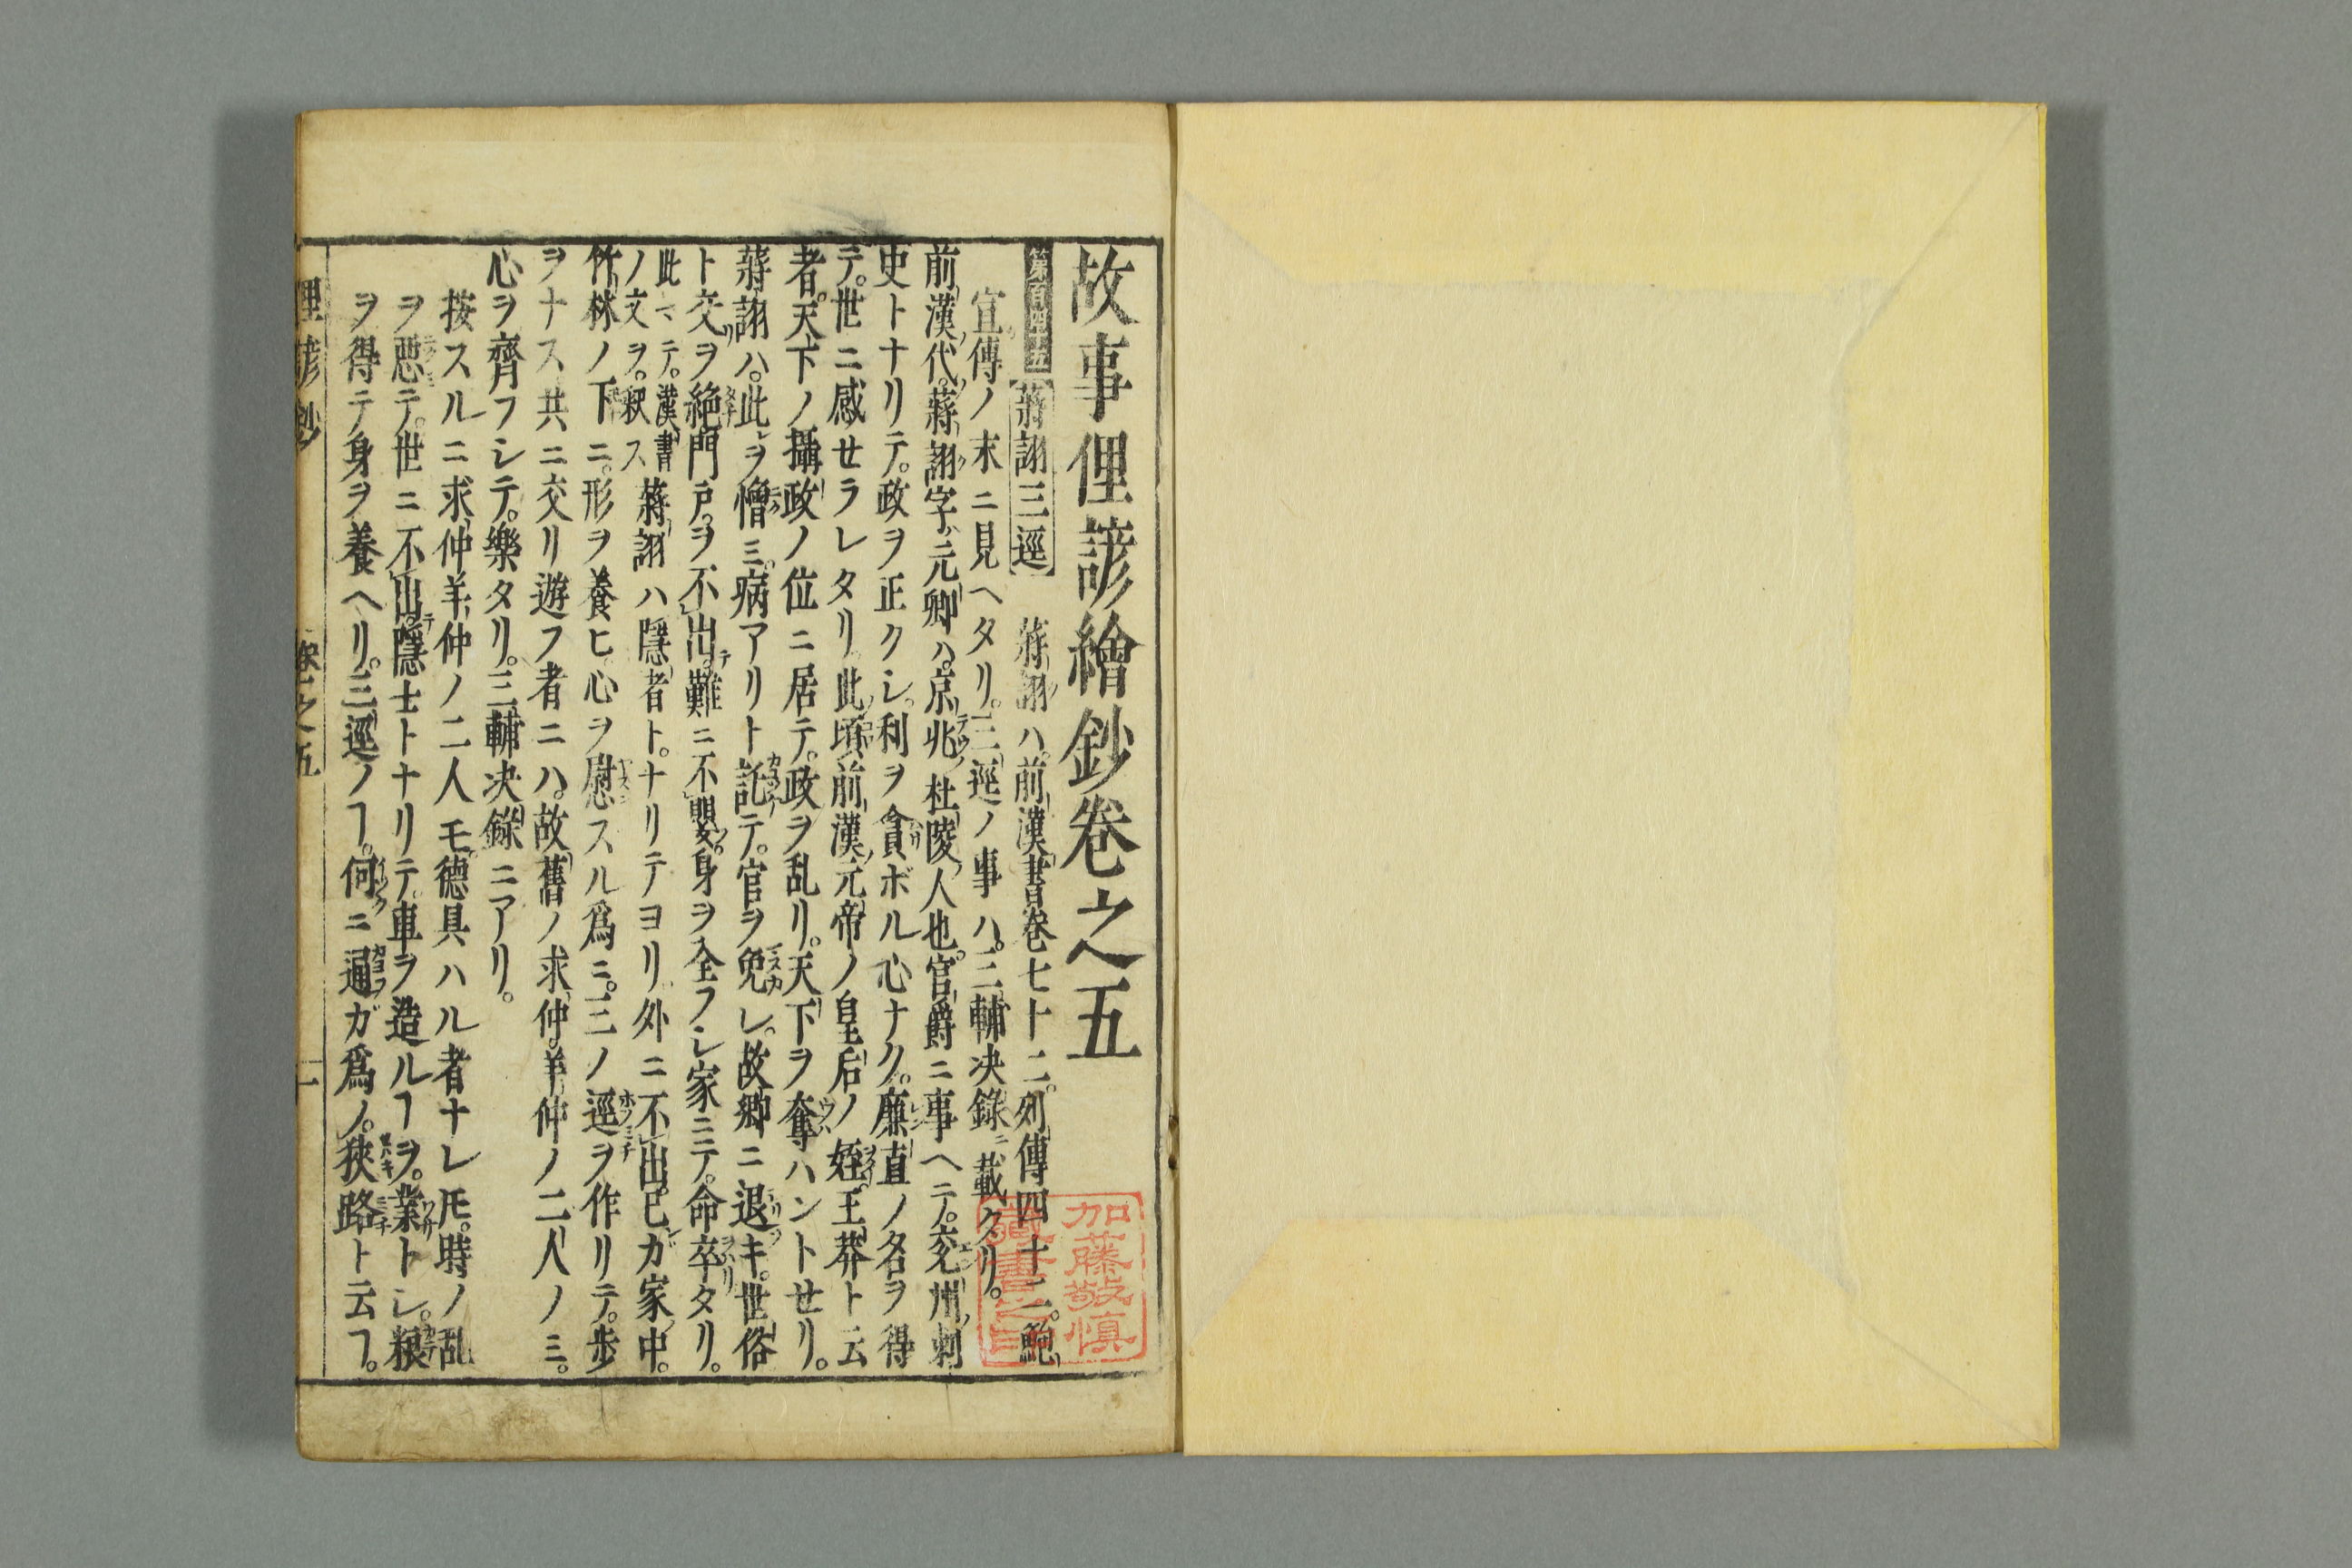 故事俚諺繪鈔卷之五
第百四十五 蔣詡三逕 蔣詡ハ。前漢書卷七十二。列傳四十二。鮑
宣傳ノ末ニ見ヘタリ。三逕ノ事ハ。三輔决錄ニ載タリ。
前漢ノ代。蔣詡字ハ元卿ハ。京兆杜陵ノ人也。官爵ニ事ヘテ。兗州ノ刺
史トナリテ。政ヲ正クシ。利ヲ貪ボル心ナク。廉直ノ名ヲ得
テ。世ニ感セラレタリ。此頃前漢ノ元帝ノ皇后ノ姪。王莽ト云
者。天下ノ攝政ノ位ニ居テ。政ヲ乱リ。天下ヲ奪ハントセリ。
蔣詡ハ。此レヲ憎ミ。病アリト託テ。官ヲ免レ。故鄉ニ退キ。世俗
ト交リヲ絶門戸ヲ不出。難ニ不嬰。身ヲ全フシ家ニテ。命卒タリ。
此マテ。漢書
ノ文ヲ。釈ス
蔣詡ハ隱者ト。ナリテヨリ。外ニ不出。己ガ家ノ中。
竹林ノ下ニ。形ヲ養ヒ。心ヲ慰スル爲ニ。三ノ逕ヲ作リテ。歩
ヲナス共ニ交リ遊フ者ニハ。故舊ノ求仲。羊仲ノ二人ノミ。
心ヲ齊フシテ。樂タリ。三輔决錄ニアリ。
按スルニ求仲羊仲ノ二人モ。德具ハル者ナレ𪜈。時ノ乱
ヲ惡テ。世ニ不出。隱士トナリテ。車ヲ造ルヿヲ。業トシ。粮
ヲ得テ身ヲ養ヘリ。三逕ノヿ。何ニ通ガ爲ノ。狹路ト云ヿ。
俚諺鈔 卷之五 一
加藤敬慎
藏書之印